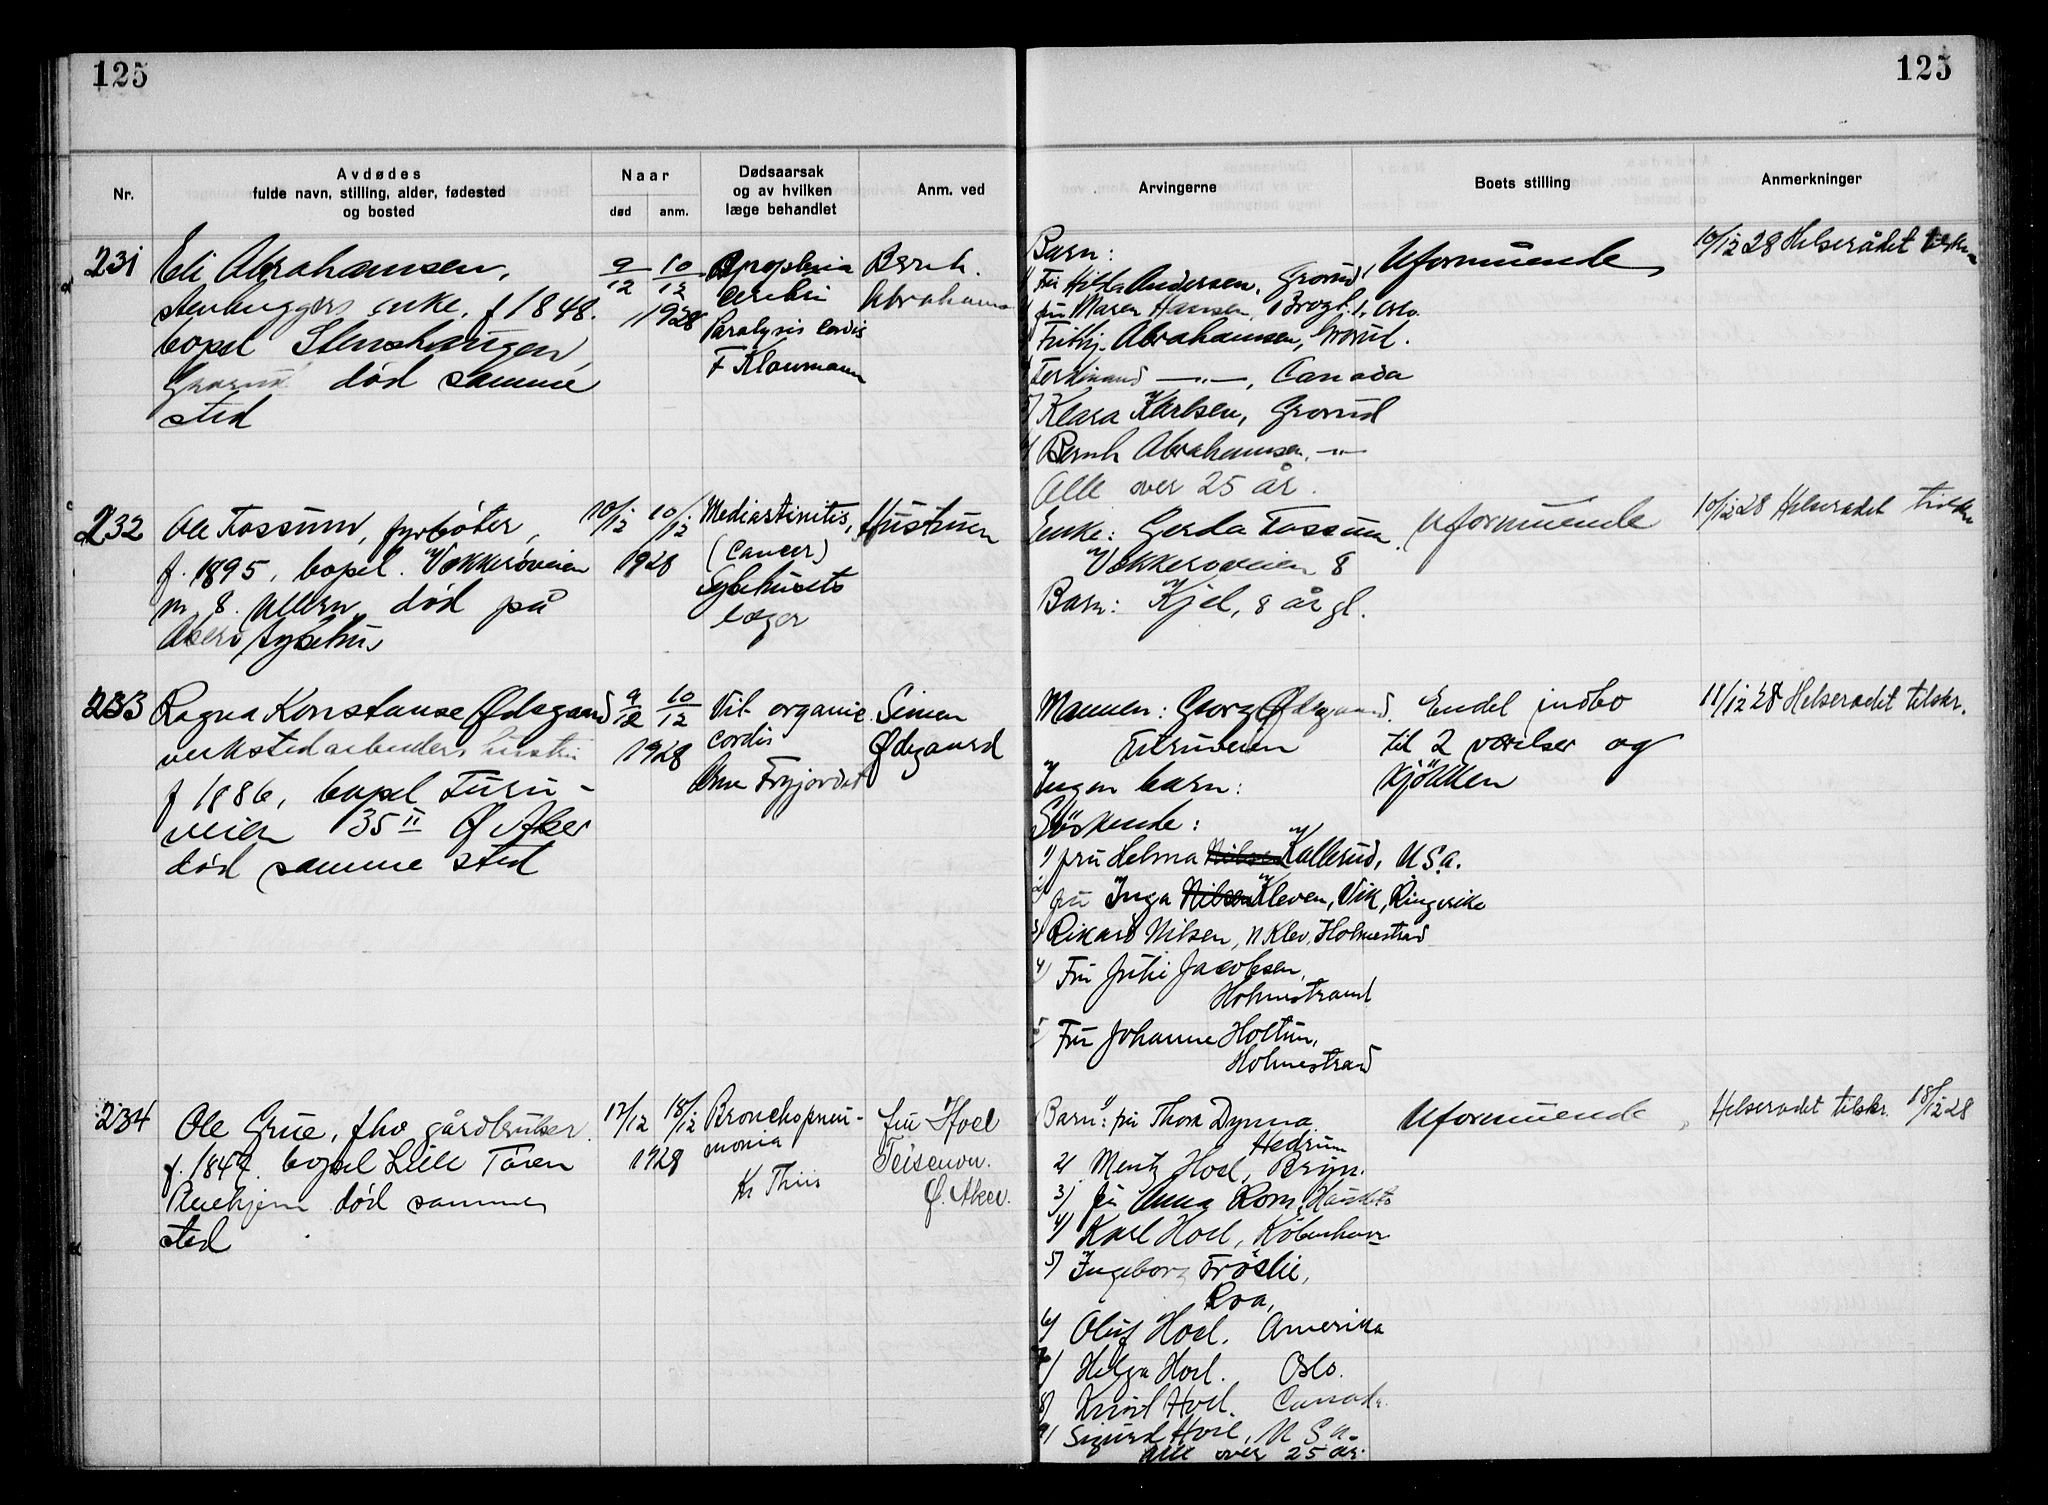 125
125
Nr.
Avdødes
fulde navn, stilling, alder, fødested
og bosted
Naar
død
anm.
Dødsaarsak
og av hvilken
læge behandlet
Anm. ved
Arvingerne
Boets stilling
Anmerkninger
231
Eli Abrahamsen,
stenhuggers enke, f 1848.
bopel Stenshaugen
Grorud død samme
sted
9/12 10/12
1928
Apoplexia
cerebri
Paralysis cordis
F Klaumann
Bernh.
Abrahams
Barn:
Fru Hilda Andersen, Grorud,
fru Maren Hansen, Brogt. 1, Oslo.
Frithj. Abrahamsen, Grorud.
Ferdinand —"—, Canada
5) Klara Karlsen, Grorud
6) Bernh Abrahamsen, —"—
Alle over 25 år.
Uformuende
10/12 28 Helserådet tilskr.
232
Ole Fossum, fyrbøter,
f. 1895, bopel. Vækkerøveien
nr 8. Ullern, død på
Akers sykehus
10/12 10/12
1928
Mediastinitis,
(Cancer)
Sykehusets
læger
Hustruen
Enke: Gerda Fossum,
Vækkerøveien 8
Barn: Kjel, 8 år gl.
Uformuende
10/12 28 Helserådet tilskr.
233
Ragna Konstanse Ødegaard
verkstedarbeiders hustru
f 1886, bopel Furu-
veien 35 II Ø Aker
død samme sted
9/12 10/12
1928
Vit. organic.
cordis
Arne Fryjordet
Simen
Ødegaard
Mannen: Georg Ødegaard.
Furuveien
Ingen barn:
Søskende:
1) fru Helma Nilsen Kallerud, U.S.a.
2) fru Inga Nilsen Kleven, Vik, Ringerike
3) Rikard Nilsen, N Klev, Holmestrad
4) Fru Julie Jacobsen,
Holmestrand
5 Fru Johanne Holtun,
Holmestrad
Endel indbo
til 2 værelser og
kjøkken
11/12 28 Helserådet tilskr.
234
Ole Grue, fhv gårdbruker.
f. 1847. bopel Lille Tåsen
Pleiehjem død samme
sted
17/12 18/12
1928
Bronchopneu-
monia
Kr Thiis
fru Hoel
Teisenvn.
Ø. Aker.
Barn: 1) fru Thora Dynna
Hedrum
2) Mentz Hoel, Bryn.
3) fru Anna Rom,
4) Karl Hoel, København
5) Ingeborg Frøslie,
Roa,
6) Oluf Hoel. Amerika
7) Helga Hoel. Oslo.
8) Hoel. Canada.
9) Sigurd Hoel, U S a.
Alle over 25 år.
Uformuende
Helserådet tilskr. 18/12 28